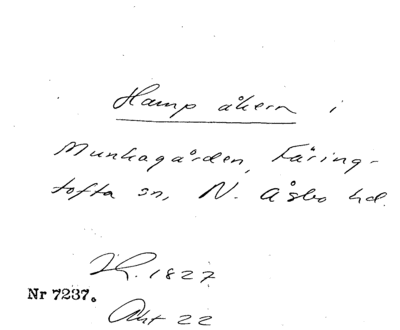 Hamp åkern i
Munkagården, Färing-
tofta sn, N. Åsbo hd.
K. 1827
Nr 7237.
Akt 22